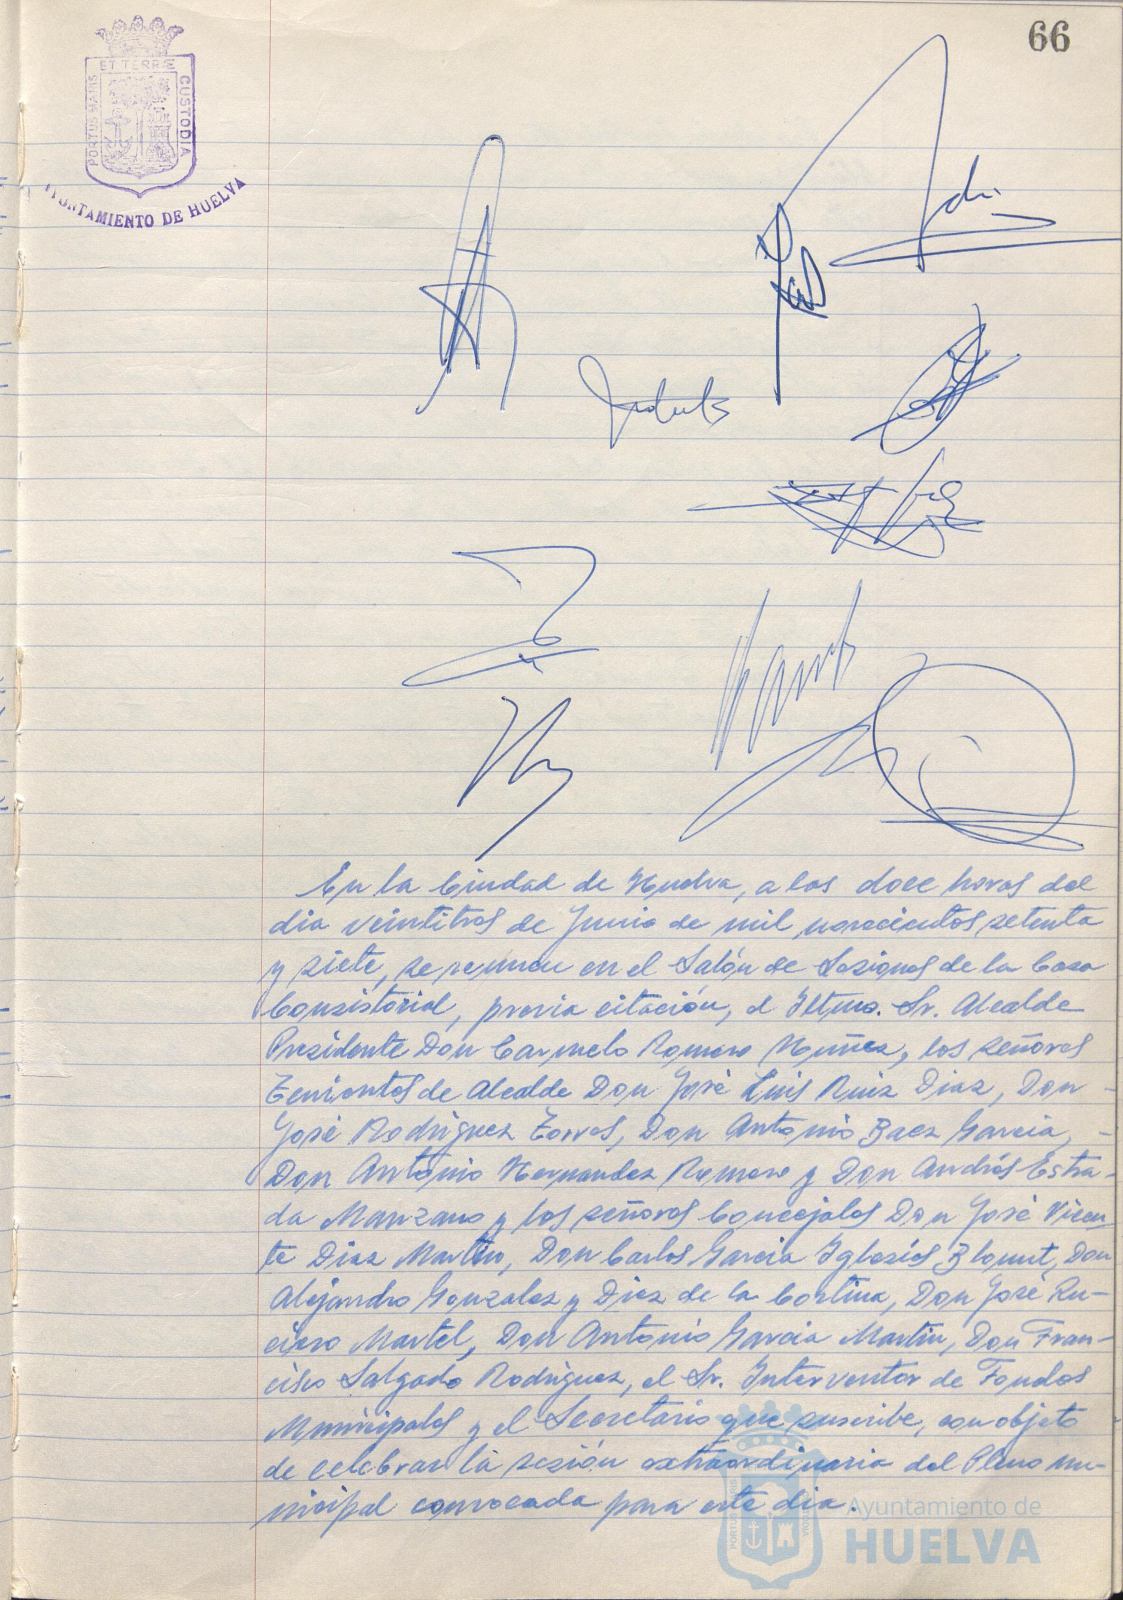 66
PORTUS MARIS ET TERRÆ CUSTODIA
AYUNTAMIENTO DE HUELVA
En la Ciudad de Huelva, a las doce horas del
dia veintitres de Junio de mil novecientos setenta
y siete, se reunen en el Salón de Sesiones de la Casa
Consistorial, previa citación, el Iltmo. Sr. Alcalde
Presidente Don Carmelo Romero Nuñez, los señores
Tenientes de Alcalde Don José Luis Ruiz Diaz, Don
José Rodriguez Torres, Don Antonio Baez Garcia,
Don Antonio Hernandez Romero y Don Andrés Estra-
da Manzano y los señores Concejales Don José Vicen-
te Diaz Martin, Don Carlos Garcia Iglesias Blount, Don
Alejandro Gonzalez y Diez de la Cortina, Don José Ru-
ciero Martel, Don Antonio Garcia Martin, Don Fran-
cisco Salgado Rodriguez, el Sr. Interventor de Fondos
Municipales y el Secretario que suscribe, con objeto
de celebrar la sesión extraordinaria del Pleno mu-
nicipal convocada para este dia.
Ayuntamiento de
HUELVA